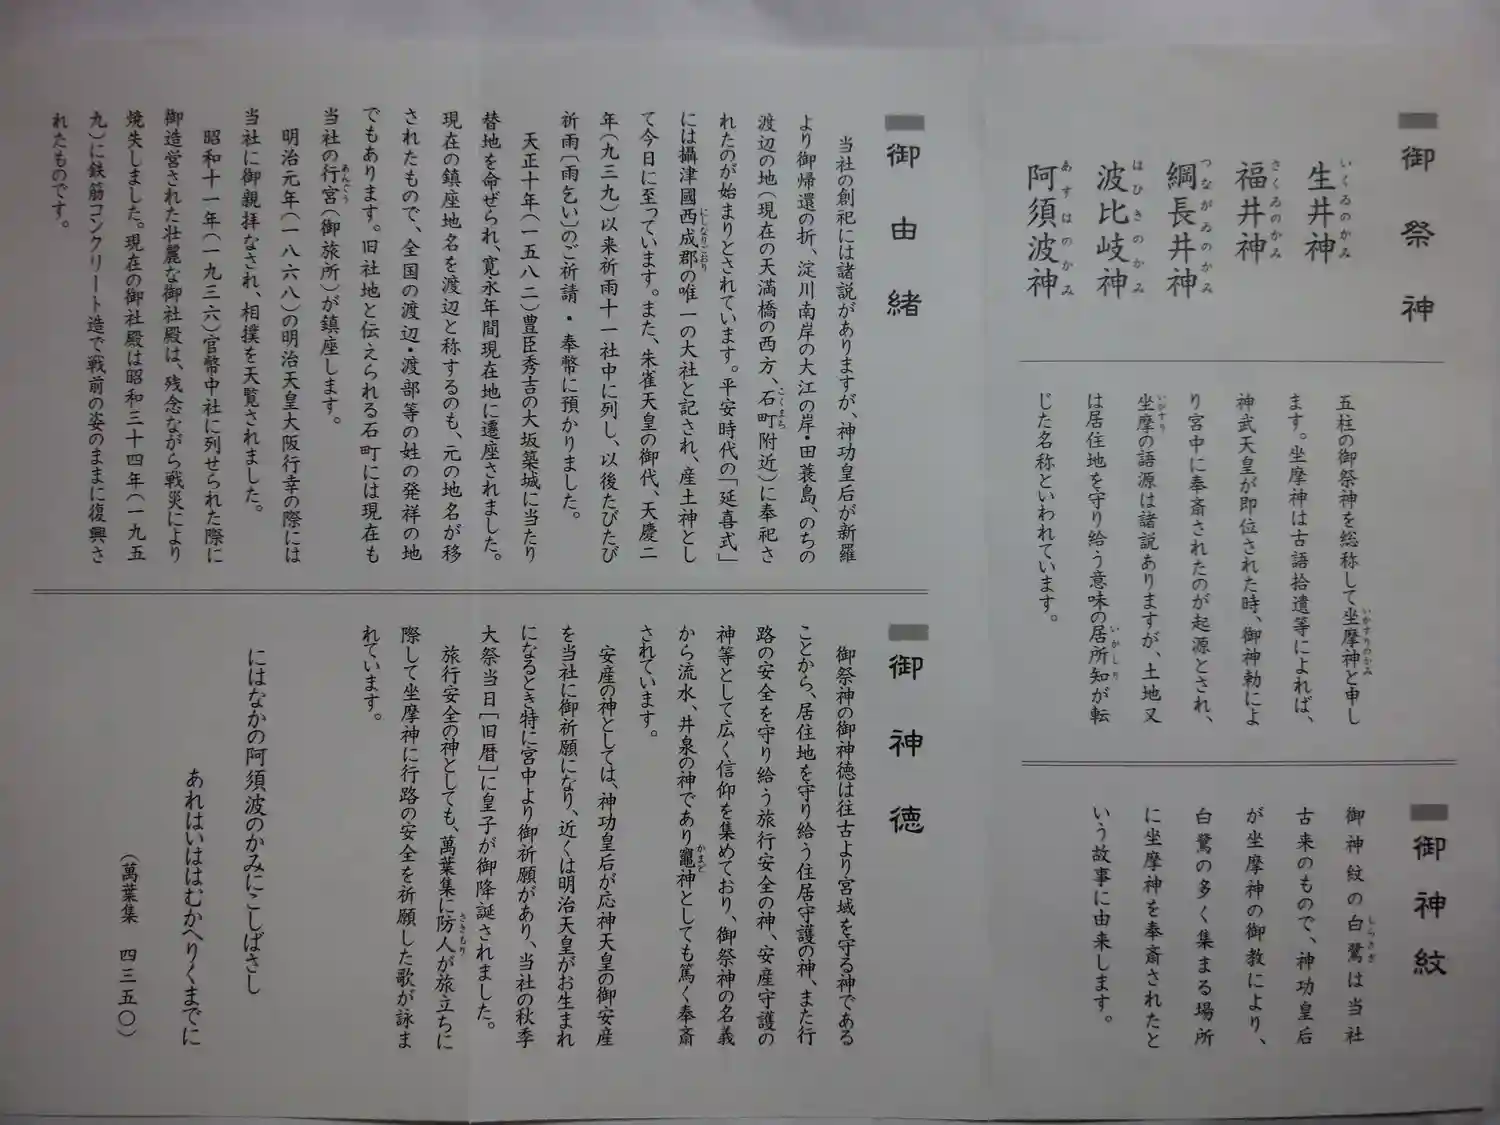 御祭神
生井神
いくゐのかみ
福井神
さくゐのかみ
綱長井神
つながゐのかみ
波比岐神
はひきのかみ
阿須波神
あすはのかみ
五柱の御祭神を総称して坐摩神と申し
いかすりのかみ
ます。坐摩神は古語拾遺等によれば、
神武天皇が即位された時、御神勅によ
り宮中に奉斎されたのが起源とされ、
坐摩の語源は諸説ありますが、土地又
いかすり
は居住地を守り給う意味の居所知が転
いかしり
じた名称といわれています。
御神紋
御神紋の白鷺は当社
しらさぎ
古来のもので、神功皇后
が坐摩神の御教により、
白鷺の多く集まる場所
に坐摩神を奉斎されたと
いう故事に由来します。
御由緒
当社の創祀には諸説がありますが、神功皇后が新羅
より御帰還の折、淀川南岸の大江の岸・田蓑島、のちの
渡辺の地(現在の天満橋の西方、石町附近)に奉祀さ
こくまち
れたのが始まりとされています。平安時代の「延喜式」
には攝津國西成郡の唯一の大社と記され、産土神とし
にしなりごおり
て今日に至っています。また、朱雀天皇の御代、天慶二
年(九三九)以来祈雨十一社中に列し、以後たびたび
祈雨〔雨乞い〕のご祈請・奉幣に預かりました。
天正十年(一五八二)豊臣秀吉の大坂築城に当たり
替地を命ぜられ、寛永年間現在地に遷座されました。
現在の鎮座地名を渡辺と称するのも、元の地名が移
されたもので、全国の渡辺・渡部等の姓の発祥の地
でもあります。旧社地と伝えられる石町には現在も
当社の行宮(御旅所)が鎮座します。
あんぐう
明治元年(一八六八)の明治天皇大阪行幸の際には
当社に御親拝なされ、相撲を天覧されました。
昭和十一年(一九三六)官幣中社に列せられた際に
御造営された壮麗な御社殿は、残念ながら戦災により
焼失しました。現在の御社殿は昭和三十四年(一九五
九)に鉄筋コンクリート造で戦前の姿のままに復興さ
れたものです。
御神徳
御祭神の御神徳は往古より宮域を守る神である
ことから、居住地を守り給う住居守護の神、また行
路の安全を守り給う旅行安全の神、安産守護の
神等として広く信仰を集めており、御祭神の名義
から流水、井泉の神であり竈神としても篤く奉斎
かまど
されています。
安産の神としては、神功皇后が応神天皇の御安産
を当社に御祈願になり、近くは明治天皇がお生まれ
になるとき特に宮中より御祈願があり、当社の秋季
大祭当日［旧暦］に皇子が御降誕されました。
旅行安全の神としても、萬葉集に防人が旅立ちに
さきもり
際して坐摩神に行路の安全を祈願した歌が詠ま
れています。
にはなかの阿須波のかみにこしばさし
あれはいははむかへりくまでに
(萬葉集 四三五〇)